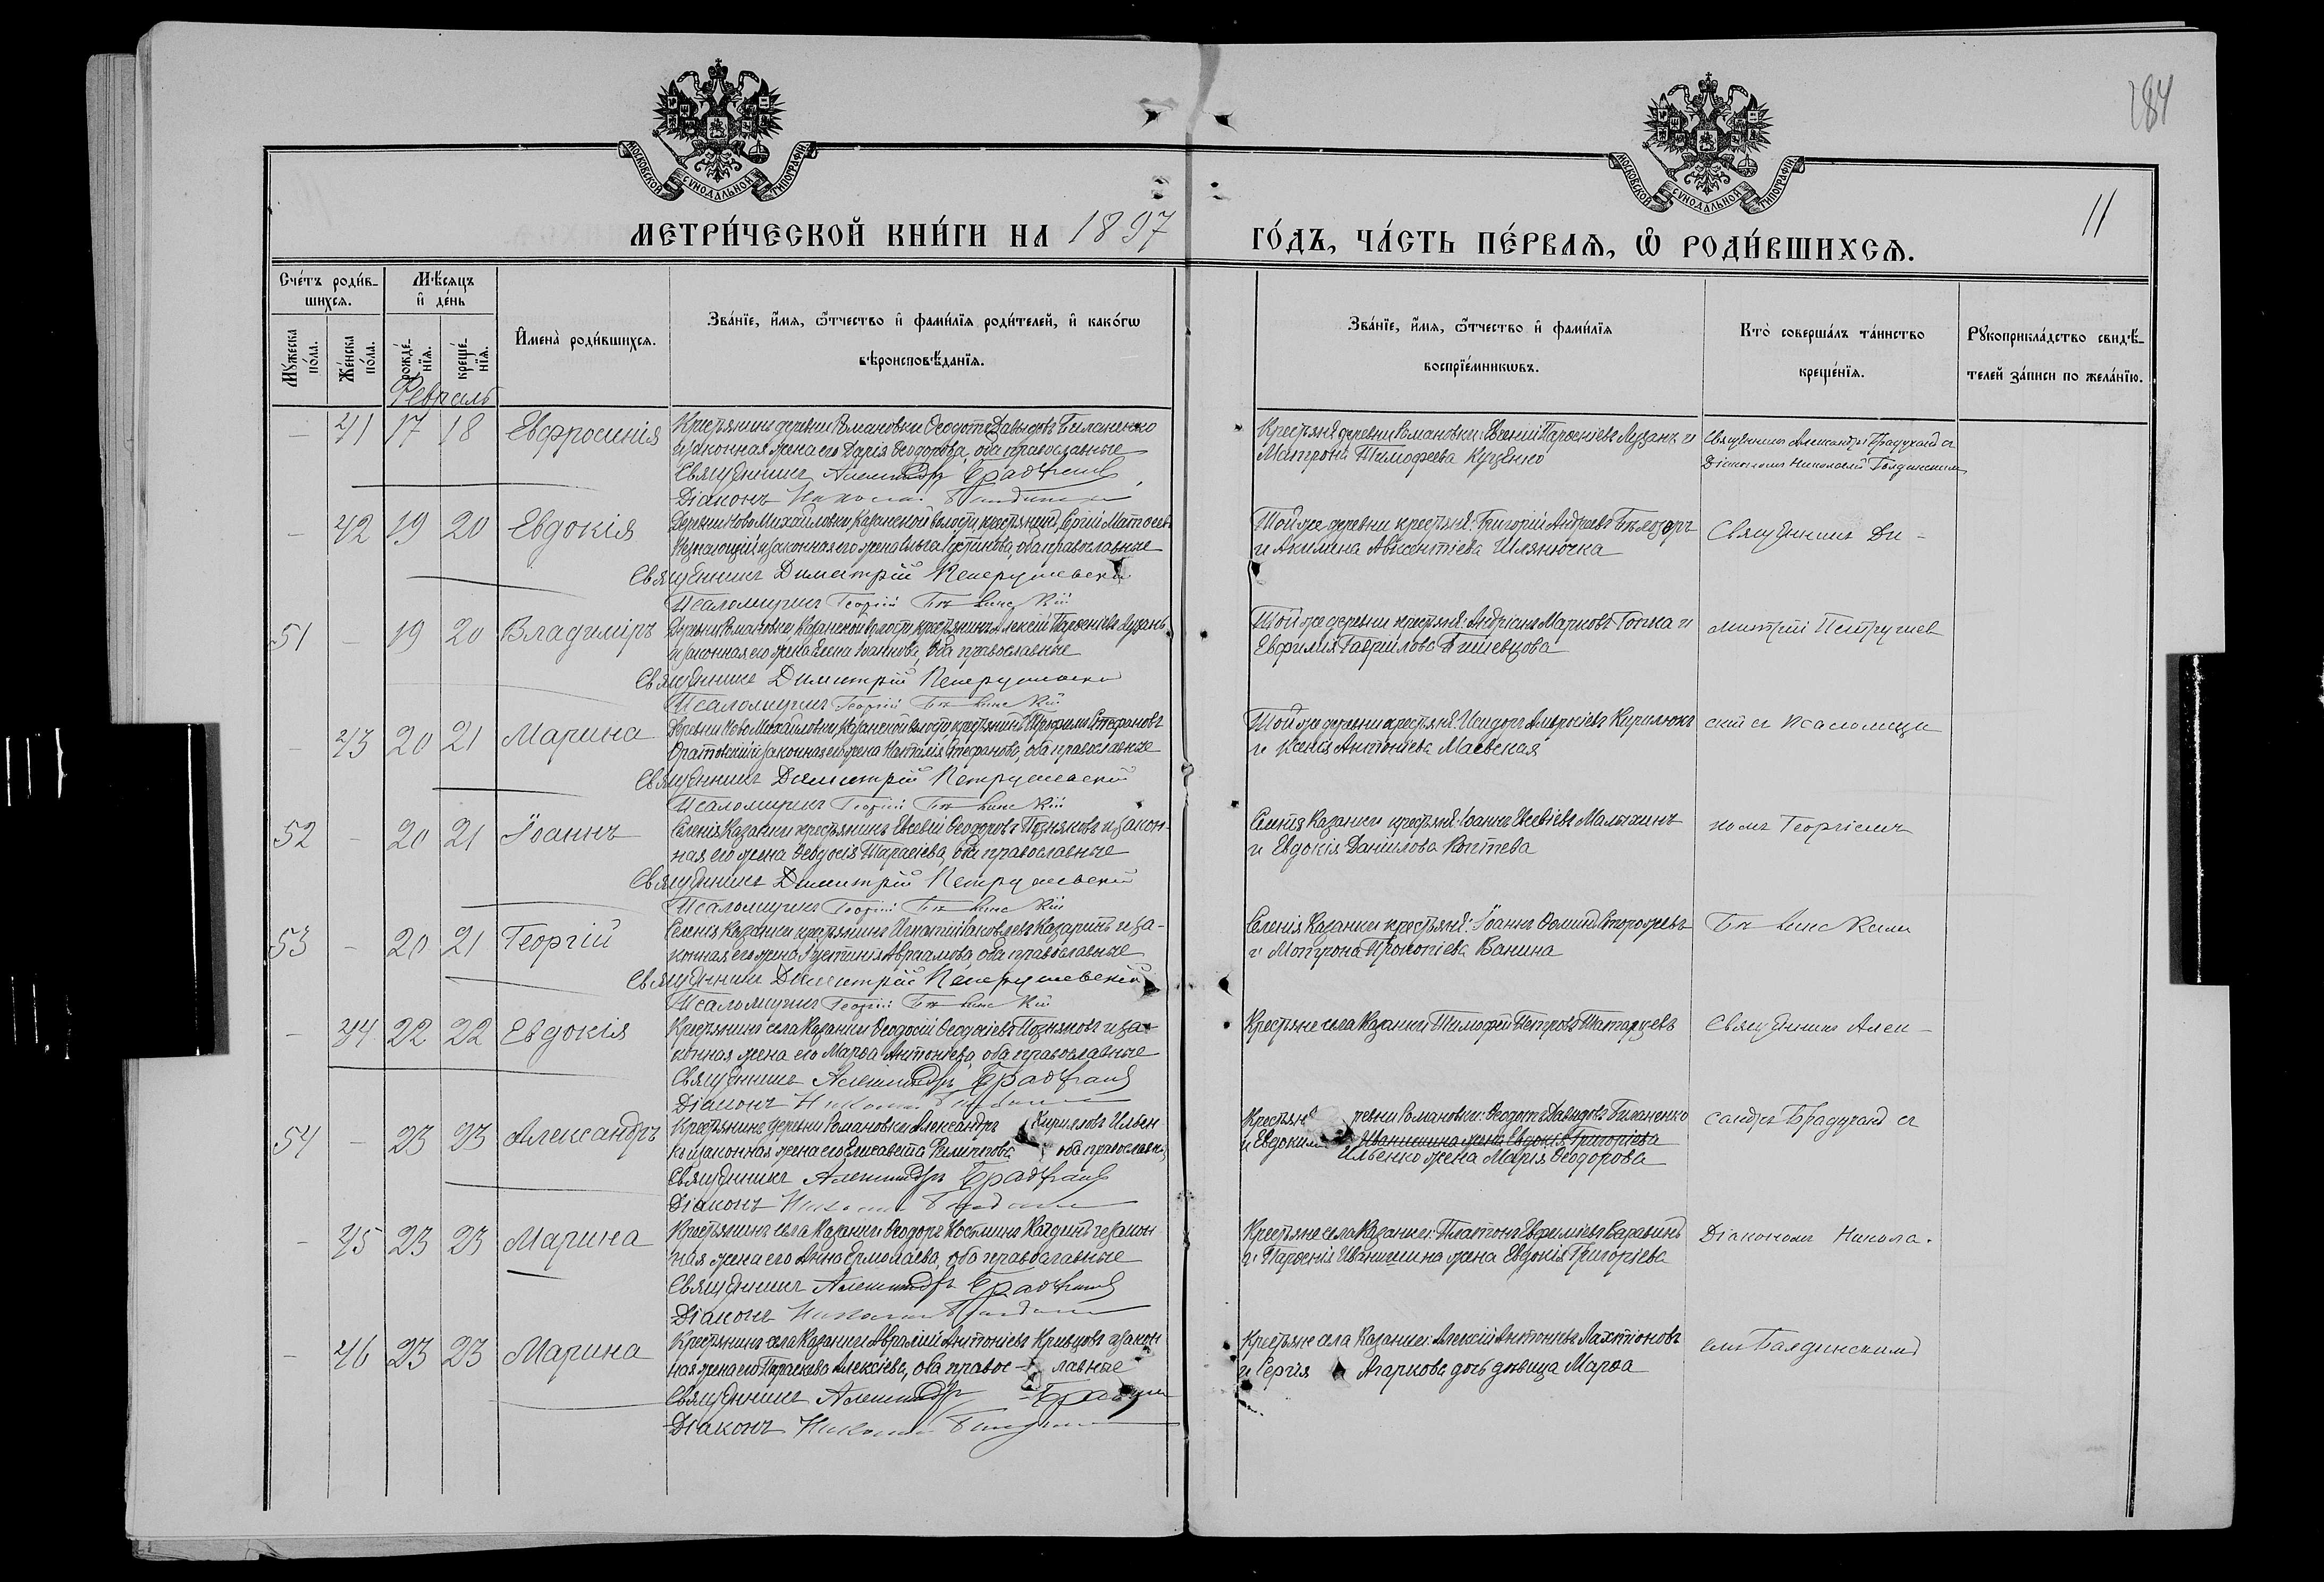 284
МОСКОВСКОЙ СѴНОДАЛЬНОЙ ТИПОГРАФІИ
МОСКОВСКОЙ СѴНОДАЛЬНОЙ ТИПОГРАФІИ
МЕТРИ́ЧЕСКОЙ КНИ́ГИ НА 1897
ГО́ДЪ, ЧА́СТЬ ПЕ́РВАѦ, Ѡ҆ РОДИ́ВШИХСѦ.
11
Сче́тъ роди́в-
шихсѧ.
Мꙋ́жеска по́ла.
Же́нска по́ла.
Мѣ́сѧцъ
и҆ де́нь
рожде́-
нїѧ.
креще́-
нїѧ.
И҆мена̀ роди́вшихсѧ.
Зва́нїе, и҆́мѧ, ѻ҆́тчество и҆ фами́лїѧ роди́телей, и҆ како́гѡ
вѣроисповѣ́данїѧ.
Зва́нїе, и҆́мѧ, ѻ҆́тчество и҆ фами́лїѧ
воспрїе́мникѡвъ.
Кто̀ соверша́лъ та́инство
креще́нїѧ.
Рꙋкоприкла́дство свидѣ́-
телей за́писи по жела́нїю.
Февраль
— 41 17 18 Евфросинія
Крестьянинъ деревни Романовки Ѳеодотъ Давидовъ Биланенко
и законная жена его Дарія Ѳеодорова, оба православные
Священникъ Александръ
Діаконъ Николай
Крестьяне деревни Романовки: Евгеній Парѳеніевъ Лузанъ и
Матрона Тимофеева Куценко
Священникъ Александръ Брадучанъ съ
Діакономъ Николаемъ Балдинскимъ
— 42 19 20 Евдокія
Деревни Ново Михайловки Казанской волости крестьянинъ Сергій Матѳеевъ
и законная его жена Ольга Іустинова, оба православные
Священникъ Димитрій Петрушевскій
Псаломщикъ Георгій
Той же деревни крестьяне: Григорій Андреевъ Бѣлозоръ
и Акилина Авксентіева Шлянючка
Священникъ Ди-
51 — 19 20 Владиміръ
Деревни Романовки Казанской волости крестьянинъ Алексій Парѳеніевъ Лузанъ
и законная его жена Елена Іоаннова, оба православные
Священникъ Димитрій Петрушевскій
Псаломщикъ Георгій
Той же деревни крестьяне: Андріанъ Марковъ Гопка и
Евфимія Гавриилова
митрій Петрушев
— 43 20 21 Марина
Деревни Ново Михайловки, Казанской волости крестьянинъ Трофимъ Стефановъ
и законная его жена Наталія Стефанова, оба православные
Священникъ Димитрій Петрушевскій
Псаломщикъ Георгій
Той же деревни крестьяне: Исидоръ Амвросіевъ Кирилюкъ
и Ксенія Антоніева Маевская
скій съ псаломщи
52 — 20 21 Іоаннъ
Селенія Казанки крестьянинъ Евсевій Ѳеодоровъ Позняковъ и закон-
ная его жена Ѳеодосія Тарасіева, оба православные
Священникъ Димитрій Петрушевскій
Псаломщикъ Георгій
Селенія Казанки крестьяне: Іоаннъ Евсевіевъ Малыхинъ
и Евдокія Даніилова Коптева
комъ Георгіемъ
53 — 20 21 Георгій
Селенія Казанки крестьянинъ Игнатій Іаковлевъ Казаринъ и за-
конная его жена Іустинія Авраамова, оба православные
Священникъ Димитрій Петрушевскій
Псаломщикъ Георгій
Селенія Казанки крестьяне: Іоаннъ Ѳоминъ Сторожевъ
и Матрона Прокопіева Ванина
— 44 22 22 Евдокія
Крестьянинъ села Казанки Ѳеодосій Ѳеодосіевъ Позняковъ и за-
конная жена его Марѳа Антоніева, оба православные
Священникъ Александръ
Діаконъ Николай
Крестьяне села Казанки Тимофей Петровъ Татарцевъ
Священникъ Алек-
54 — 23 23 Александръ
Крестьянинъ деревни Романовки Александръ Кирилловъ Ильен
ко и законная жена его Елисавета Филиппова оба православн.
Священникъ Александръ
Діаконъ Николай
Крестьяне ревни Романовки: Ѳеодотъ Давидовъ Биланенко
и Евдоким Иванишина жена Евдокія Григоріева
Ильенко жена Марія Ѳеодорова
сандръ Брадучанъ съ
— 45 23 23 Марина
Крестьянинъ села Казанки Ѳеодоръ Косминъ и закон
ная жена его Анна Ермолаева, оба православные
Священникъ Александръ
Діаконъ Николай
Крестьяне села Казанки: Платонъ Евфиміевъ
и Парѳенія Иванишина жена Евдокія Григоріева
Діакономъ Никола-
— 46 23 23 Марина
Крестьянинъ села Казанки Авраамій Антоніевъ Кривцовъ и закон
ная жена его Параскева Алексіева, оба правос-лавные
Священникъ Александръ
Діаконъ Николай
Крестьяне села Казанки: Алексій Антоніевъ Лахтіоновъ
и Сергія Агаркова дочь дѣвица Марѳа
емъ Балдинскимъ